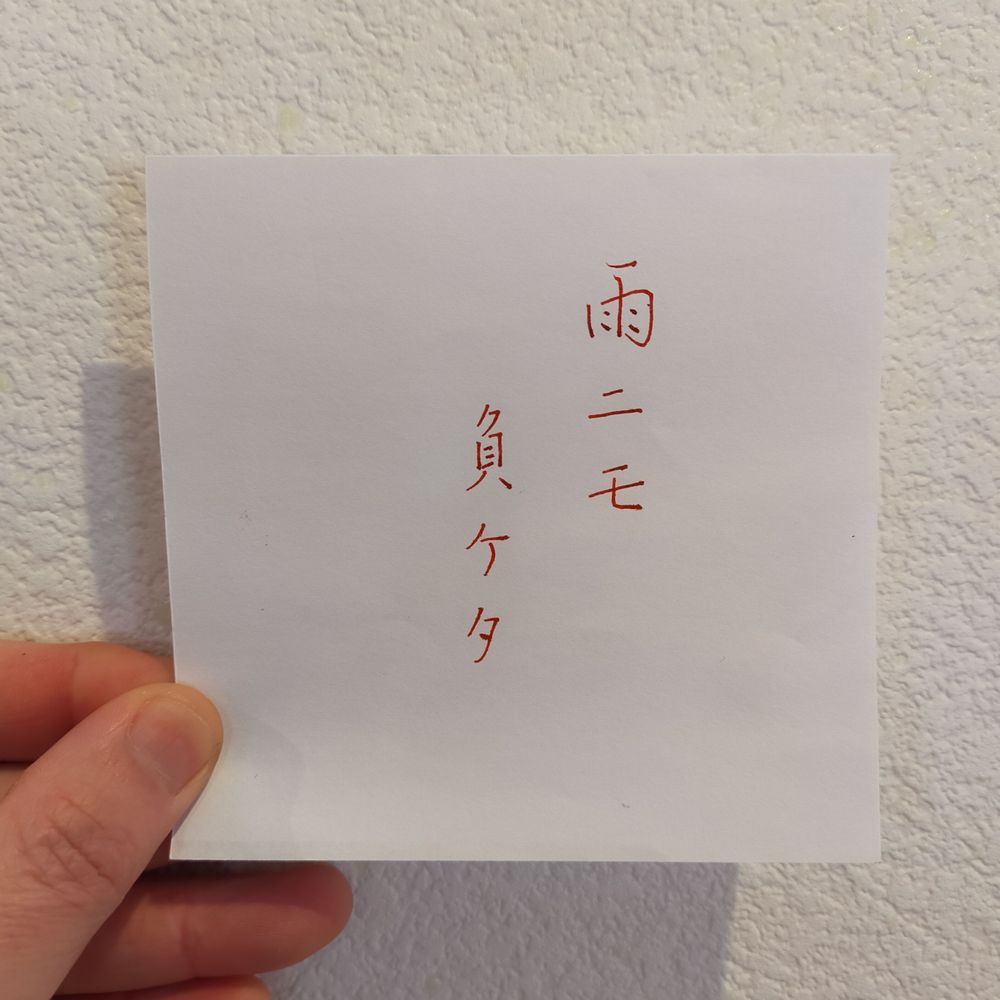 雨ニモ
負ケタ